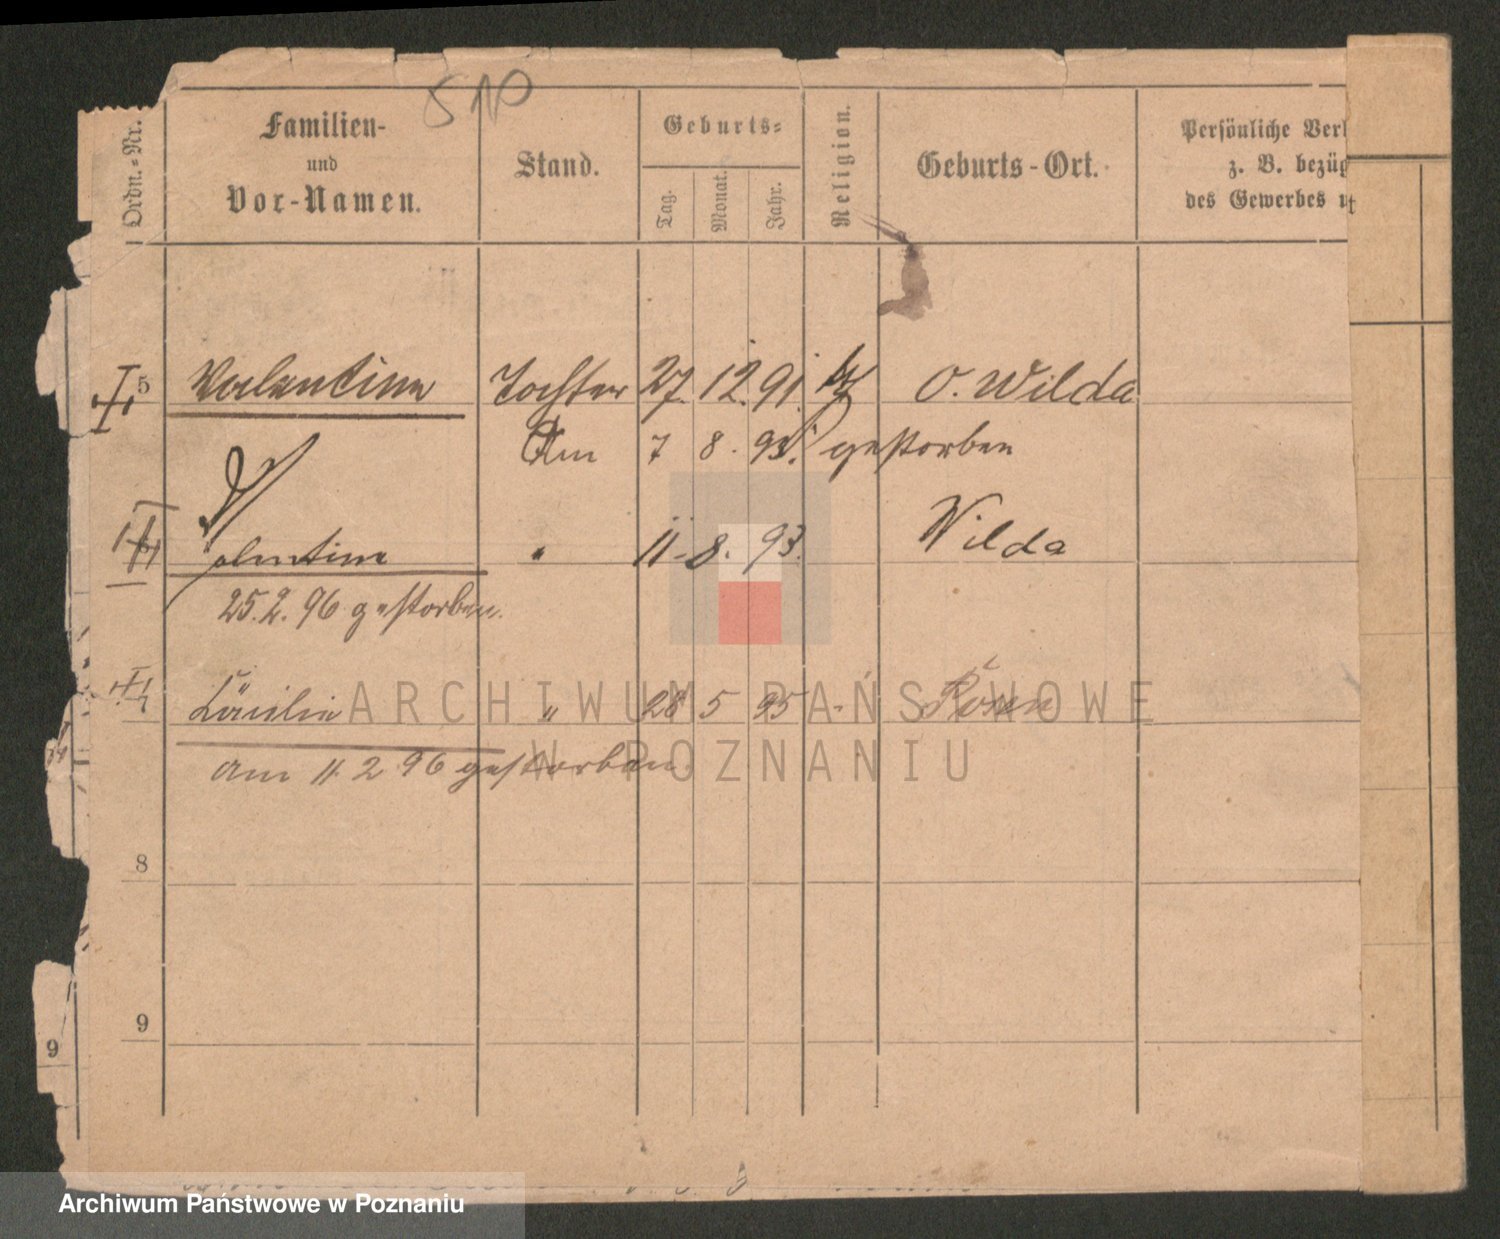 510
Ordn.-Nr.
Familien-
und
Vor-Namen.
Stand.
Geburts-
Tag.
Monat.
Jahr.
Religion.
Geburts-Ort.
Persönliche Verh
z. B. bezüg
des Gewerbes u
5 Valentine Tochter 27. 12. 91. O. Wilda
Am 7 8. 93. gestorben
Valentine " 11. 8. 93. Wilda
25. 2. 96 gestorben.
7 Cäcilie " 28 5 95 - Posen
am 11. 2 96 gestorben.
8
9
9
ARCHIWUM PAŃSTWOWE
W POZNANIU
Archiwum Państwowe w Poznaniu